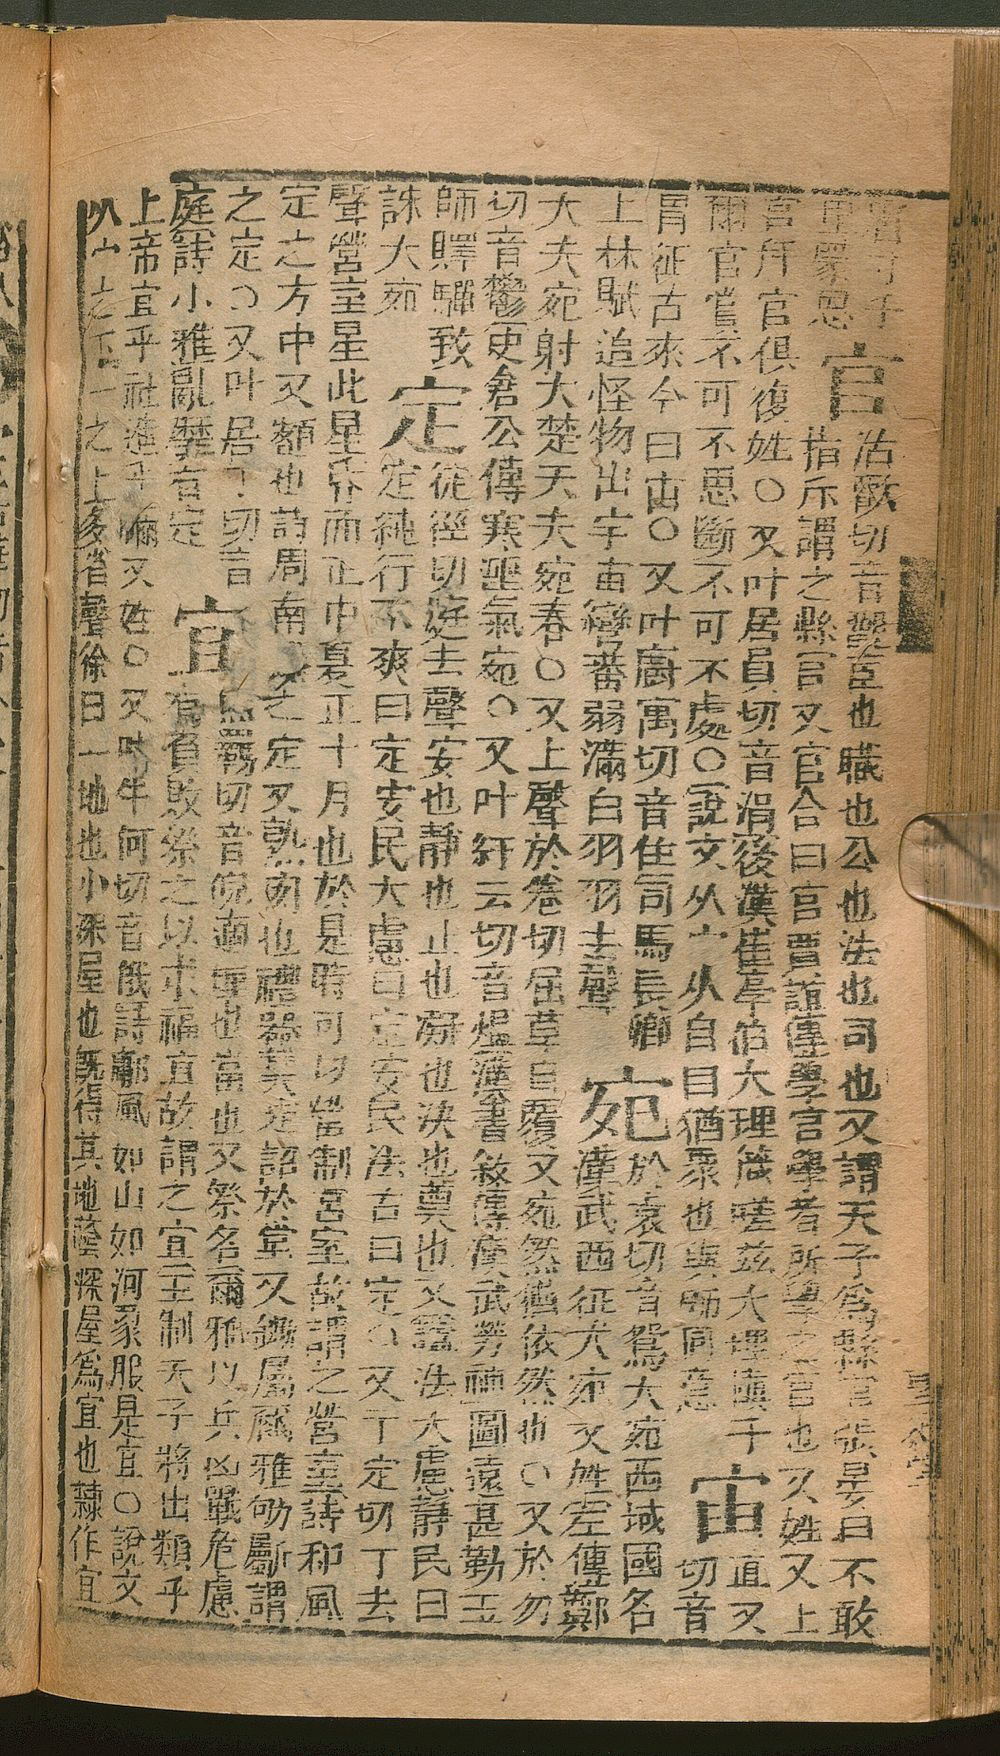 官 沽歡切音觀臣也職也公也法也司也又謂天子爲縣官張晏曰不敢
指斥謂之縣官又官合曰宫賈誼傳學官學者所學之官也又姓又上
官 官俱復姓〇又叶居員切音涓後漢崔亭伯大理箴嗟兹大理愼于
爾官賞不可不思斷不可不處〇說文从宀从自目猶眾也與師同意 宙 直又切音
胄往古來今曰宙〇又叶廚寓切音住司馬長卿
上林賦追怪物出宇宙彎蕃弱滿白羽羽去聲 宛 於袁切音鴛大宛西域國名
漢武西征大宛又姓左傳鄭
大夫宛射犬楚大夫宛春〇又上聲於卷切屈草自覆又宛然猶依然也〇又於勿
切音鬱史倉公傳寒濕氣宛〇又叶紆云切音熅漢書敘傳漢武勞神圖遠甚勤王
師驒驒致
誅大宛 定 徒徑切庭去聲安也靜也止也凝也决也奠也又諡法大慮靜民曰
定純行不爽曰定安民大慮曰定安民法古曰定〇又丁定切丁去
聲營室星此星昏而正中夏正十月也於是時可以營制宫室故謂之營室詩鄘風
定之方中又額也詩周南 之定又熟 也禮器羹定詔於堂又鋤屬爾雅斪斸謂
之定〇又叶 切音
庭詩小雅亂靡有定 宜 魚羈切音倪適理也當也又祭名爾雅以兵凶戰危慮
有負敗祭之以求福宜故謂之宜王制天子將出類乎
上帝宜乎社造乎禰又姓〇又叶牛何切音俄詩鄘風如山如河象服是宜〇說文
从宀之下一之上多省聲徐曰一地也小深屋也旣得其地蔭深屋爲宜也隷作宜